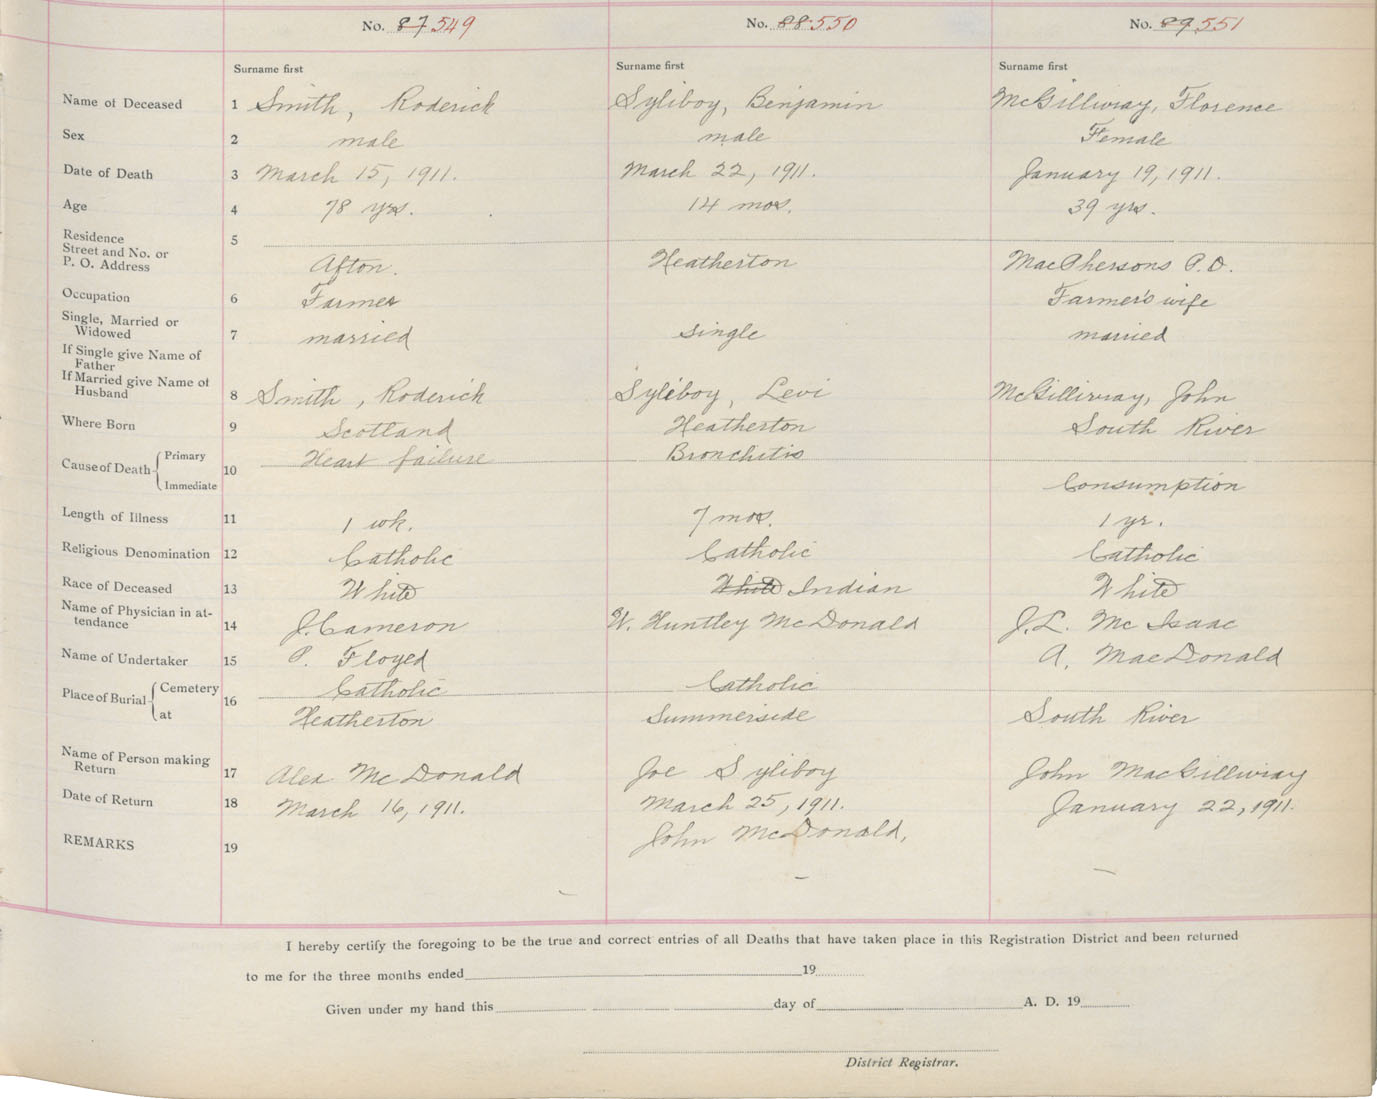 No. 87 549 No. 88 550 No. 89 551
Surname first Surname first Surname first
Name of Deceased 1 Smith, Roderick Syliboy, Benjamin McGillivray, Florence
Sex 2 male male Female
Date of Death 3 March 15, 1911. March 22, 1911. January 19, 1911.
Age 4 78 yrs. 14 mos. 39 yrs.
Residence 5
Street and No. or
P. O. Address Afton. Heatherton MacPhersons P.O.
Occupation 6 Farmer Farmer's wife
Single, Married or
Widowed 7 married single married
If Single give Name of
Father
If Married give Name of
Husband 8 Smith, Roderick Syliboy, Levi McGillivray, John
Where Born 9 Scotland Heatherton South River
Cause of Death Primary 10 Heart failure Bronchitis
Immediate Consumption
Length of Illness 11 1 wk. 7 mos. 1 yr.
Religious Denomination 12 Catholic Catholic Catholic
Race of Deceased 13 White White Indian White
Name of Physician in at-
tendance 14 J. Cameron W. Huntley McDonald J.L. Mc Isaac
Name of Undertaker 15 P. Floyed A. MacDonald
Place of Burial Cemetery 16 Catholic Catholic
at Heatherton Summerside South River
Name of Person making
Return 17 Alex McDonald Joe Syliboy John MacGillivray
Date of Return 18 March 16, 1911. March 25, 1911. January 22, 1911.
REMARKS 19 John McDonald,
I hereby certify the foregoing to be the true and correct entries of all Deaths that have taken place in this Registration District and been returned
to me for the three months ended 19
Given under my hand this day of A. D. 19
District Registrar.